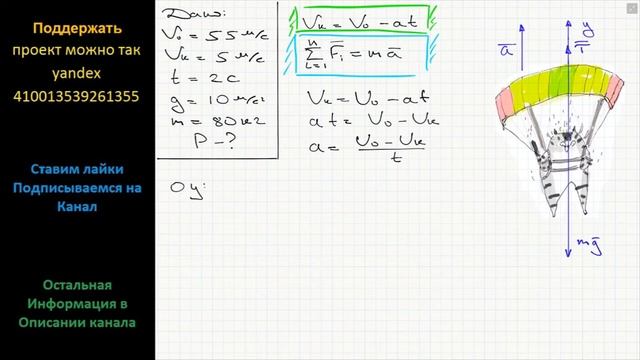 Поддержать
проект можно так
yandex
410013539261355
Ставим лайки
Подписываемся на
Канал
Остальная
Информация в
Описании канала
Дано:
V₀ = 55 м/с
Vк = 5 м/с
t = 2 с
g = 10 м/с²
m = 80 кг
P - ?
Oy:
Vк = V₀ - at
n
∑ F̅i = m a̅
i=1
Vк = V₀ - at
at = V₀ - Vк
a = (V₀ - Vк) / t
y
a̅
T̅
mg̅